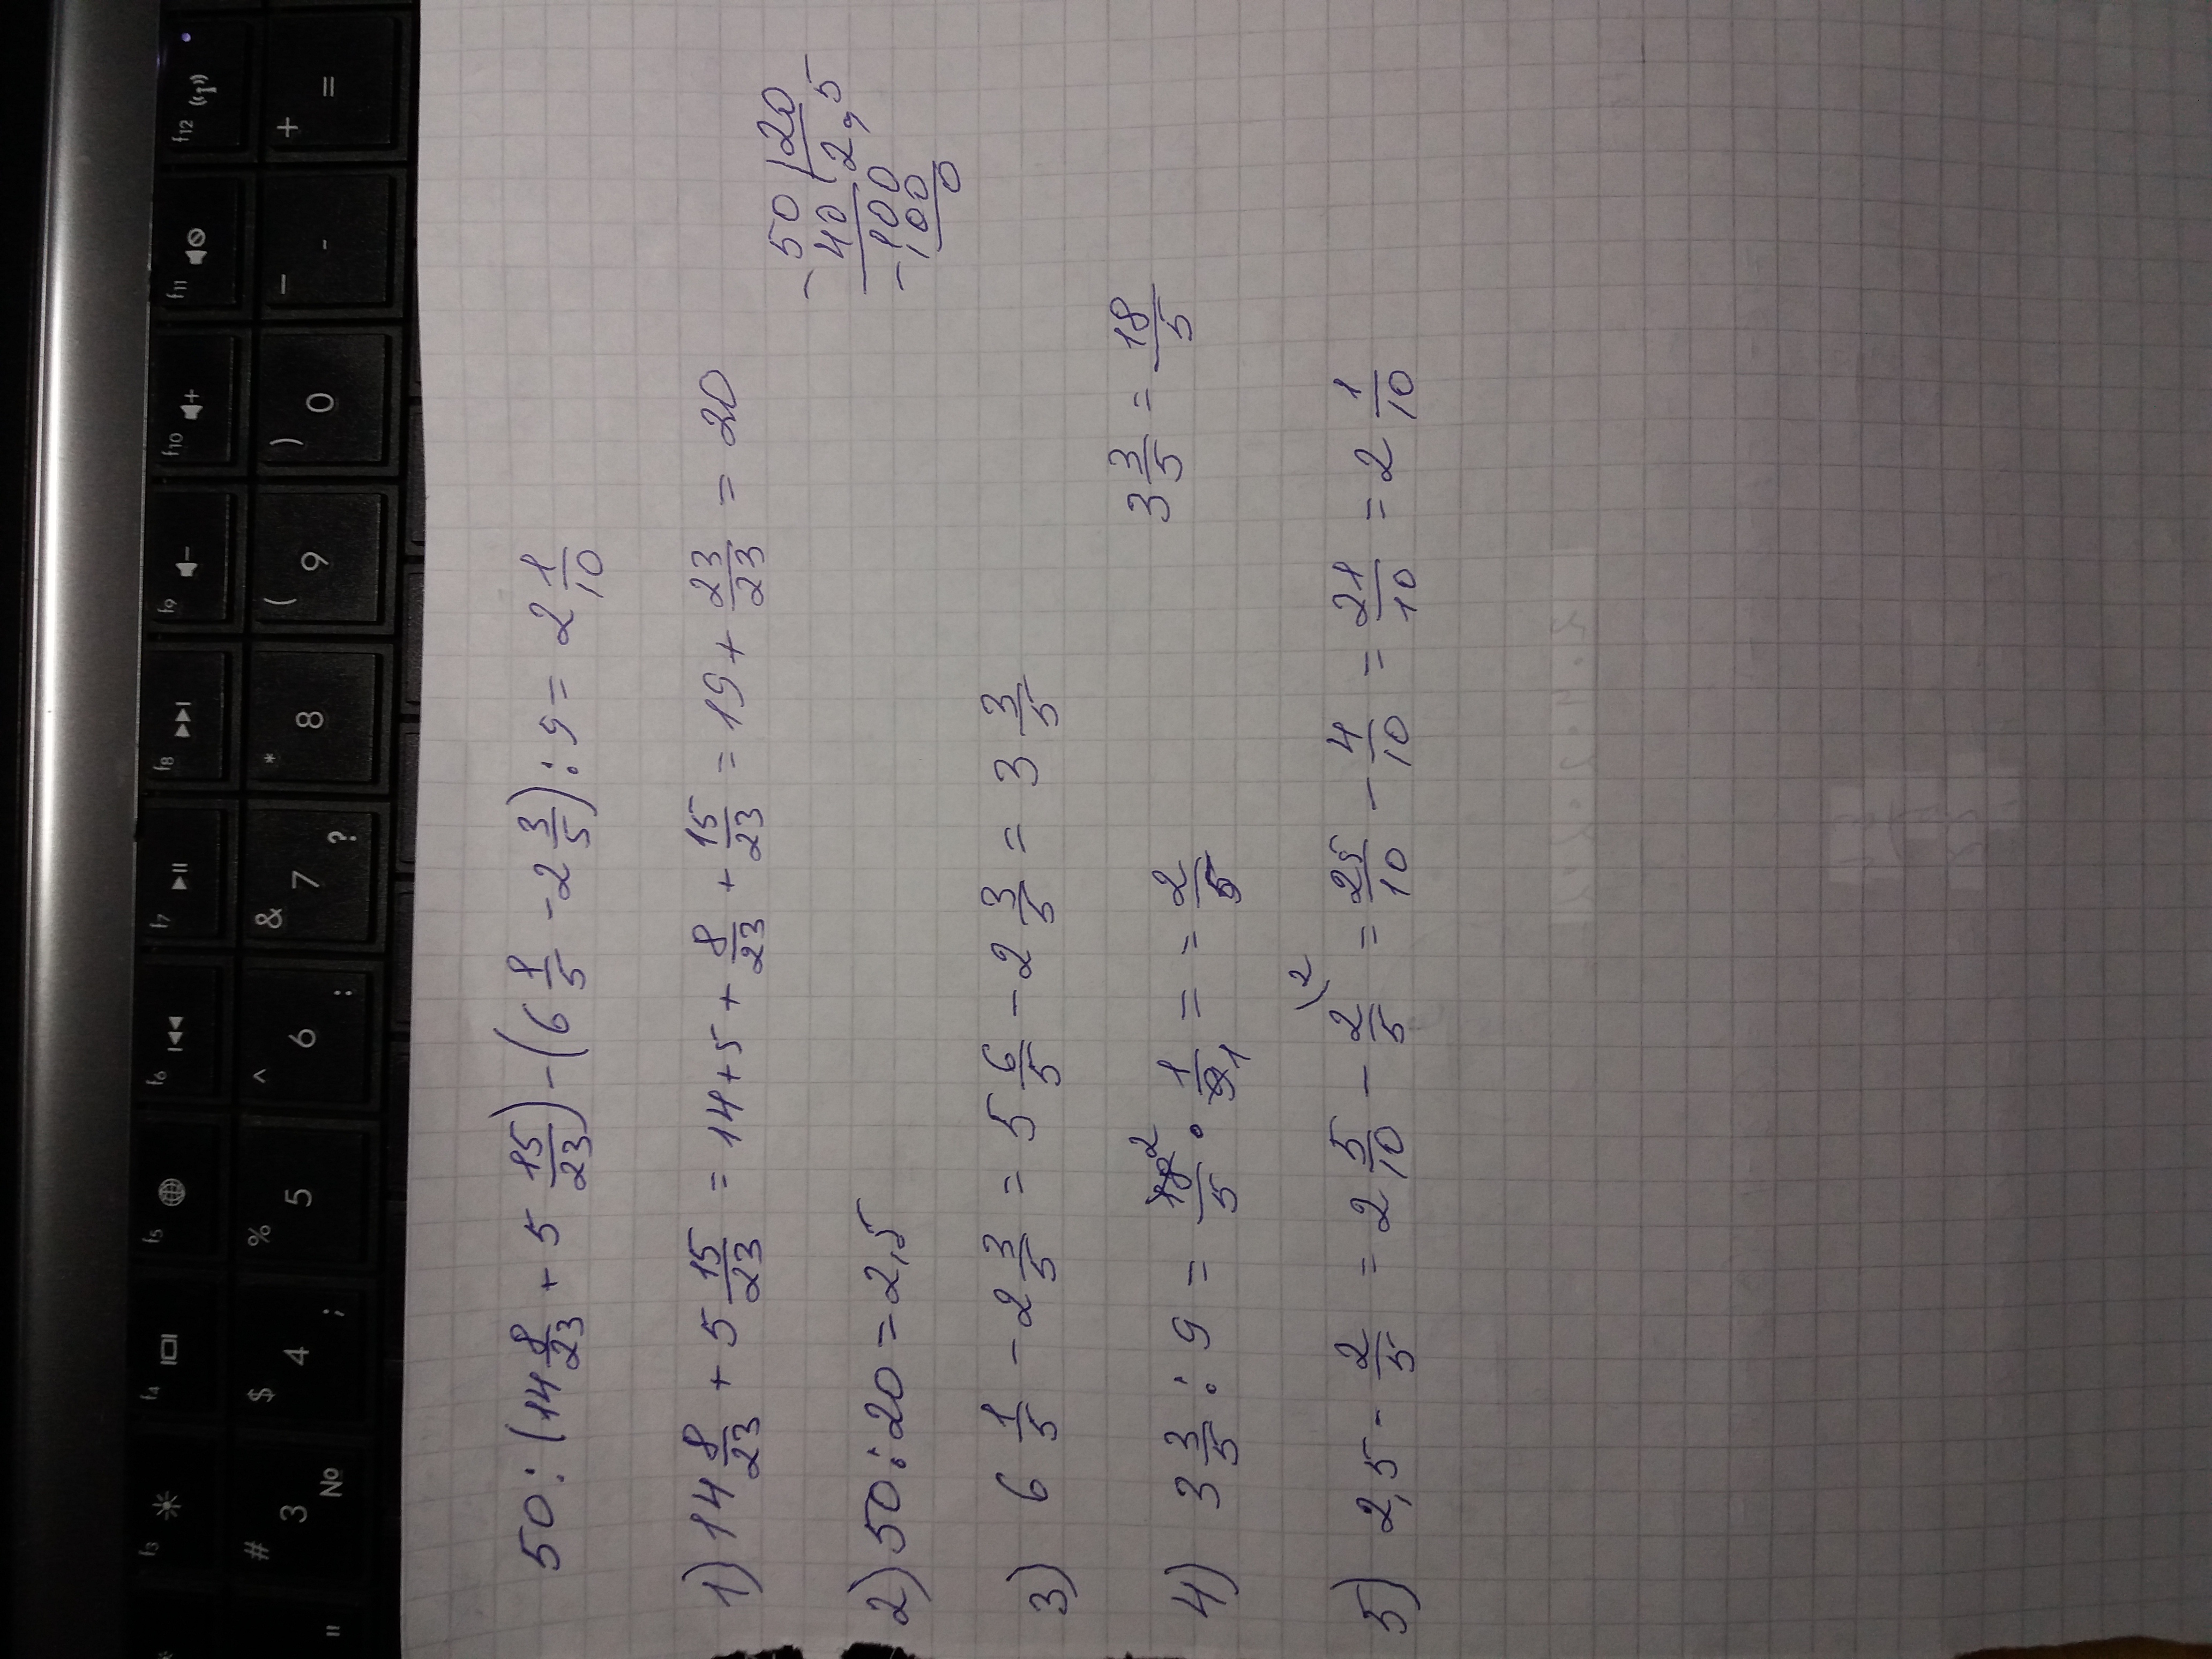 f3 f4 f5 f6 f7 f8 f9 f10 f11 f12
# $ % ^ & * ( ) — +
" 3 № 4 ; 5 6 : 7 ? 8 9 0 - =
50 : (14 8/23 + 5 15/23) - (6 1/5 - 2 3/5) : 9 = 2 1/10
1) 14 8/23 + 5 15/23 = 14 + 5 + 8/23 + 15/23 = 19 + 23/23 = 20
- 50 | 20
40 2,5
- 100
100
0
2) 50 : 20 = 2,5
3) 6 1/5 - 2 3/5 = 5 6/5 - 2 3/5 = 3 3/5
3 3/5 = 18/5
4) 3 3/5 : 9 = 18 2/5 · 1/9 1 = = 2/5
5) 2,5 - 2/5 = 2 5/10 - 2/5 (2 = 25/10 - 4/10 = 21/10 = 2 1/10